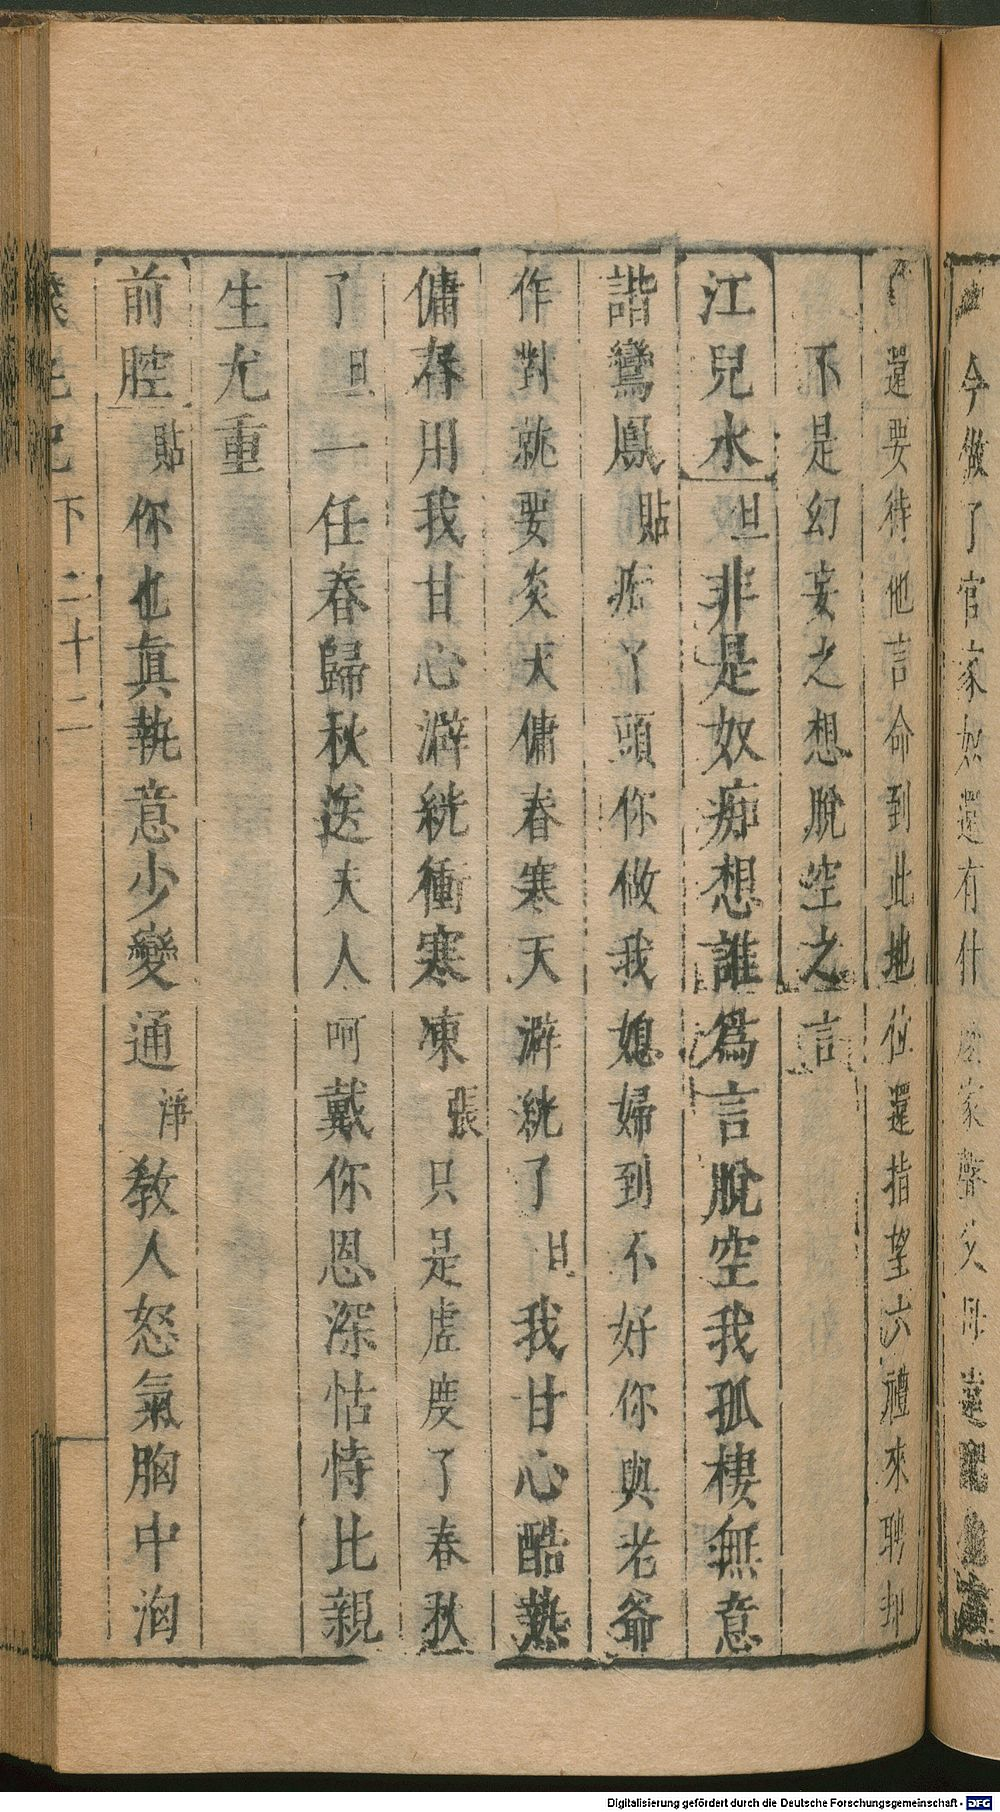 今做了官家如還有什
還要待他言命到此地位還指望六禮來聘却
不是幻妄之想脫空之言
江兒水 旦 非是奴痴想誰爲言脫空我孤棲無意
諧鸞鳳 貼 痴丫頭你做我媳婦到不好你與老爺
作對就要炎天傭春寒天澼絖了 旦 我甘心酷熱
傭舂用我甘心澼絖衝寒凍 張 只是虛度了春秋
了 旦 一任春歸秋送夫人呵戴你恩深怙恃比親
生尤重
前腔 貼 你也眞執意少變通 淨 敎人怒氣胸中洶
下 二十二
Digitalisierung gefördert durch die Deutsche Forschungsgemeinschaft - DFG